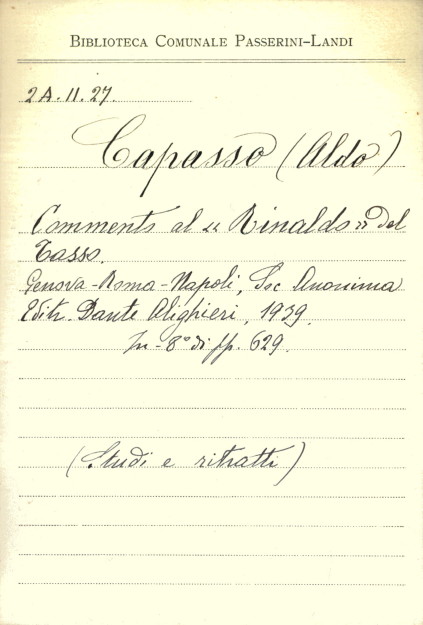 BIBLIOTECA COMUNALE PASSERINI-LANDI
2A.II.27.
Capasso (Aldo)
Commento al « Rinaldo » del
Tasso.
Genova-Roma-Napoli, Soc Anonima
Editr. Dante Alighieri, 1939.
In-8° di pp. 629.
(Studi e ritratti)